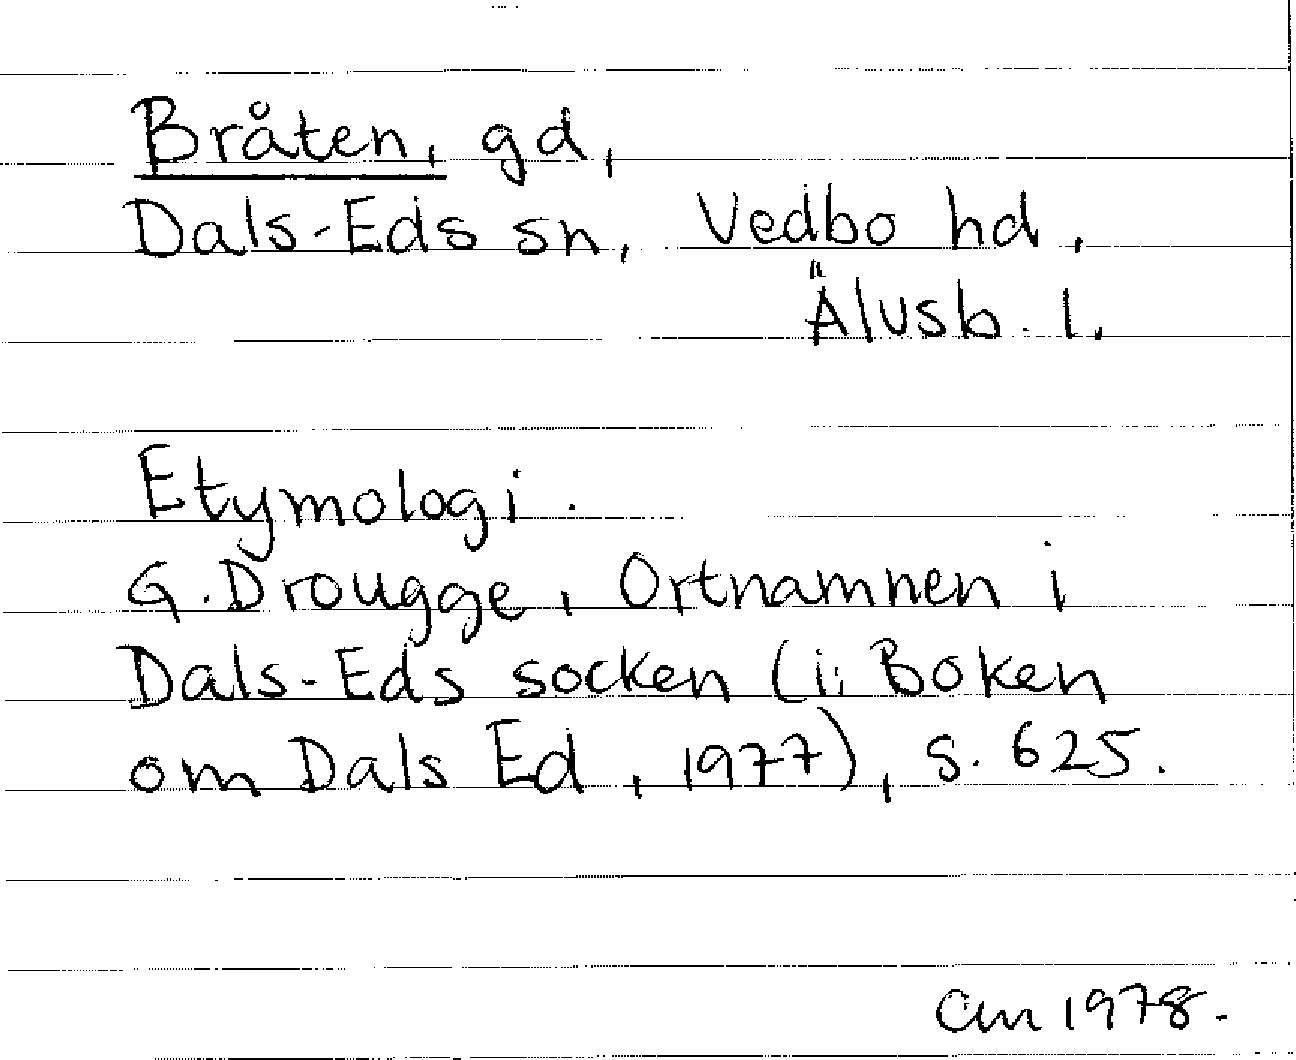 Bråten, gd,
Dals-Eds sn, Vedbo hd,
Älvsb. l.
Etymologi.
G. Drougge, Ortnamnen i
Dals-Eds socken (i: Boken
om Dals Ed, 1977), s. 625.
1978.